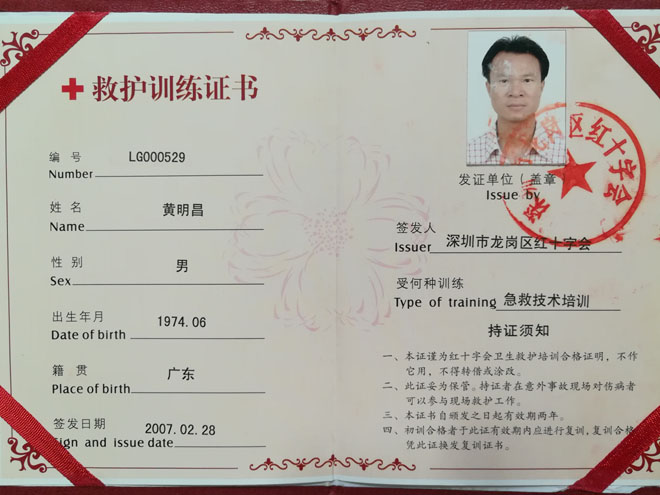 救护训练证书
编 号 LG000529
Number
姓 名 黄明昌
Name
性 别 男
Sex
出生年月 1974.06
Date of birth
籍 贯 广东
Place of birth
签发日期 2007.02.28
Sign and issue date
发证单位（盖章）
Issue by
岗区红十字会
签发人
Issuer 深圳市龙岗区红十字会
受何种训练
Type of training 急救技术培训
持证须知
一、本证谨为红十字会卫生救护培训合格证明，不作
它用，不得转借或涂改。
二、此证妥为保管。持证者在意外事故现场对伤病者
可以参与现场救护工作。
三、本证书自颁发之日起有效期两年。
四、初训合格者于此证有效期内应进行复训，复训合格
凭此证换发复训证书。